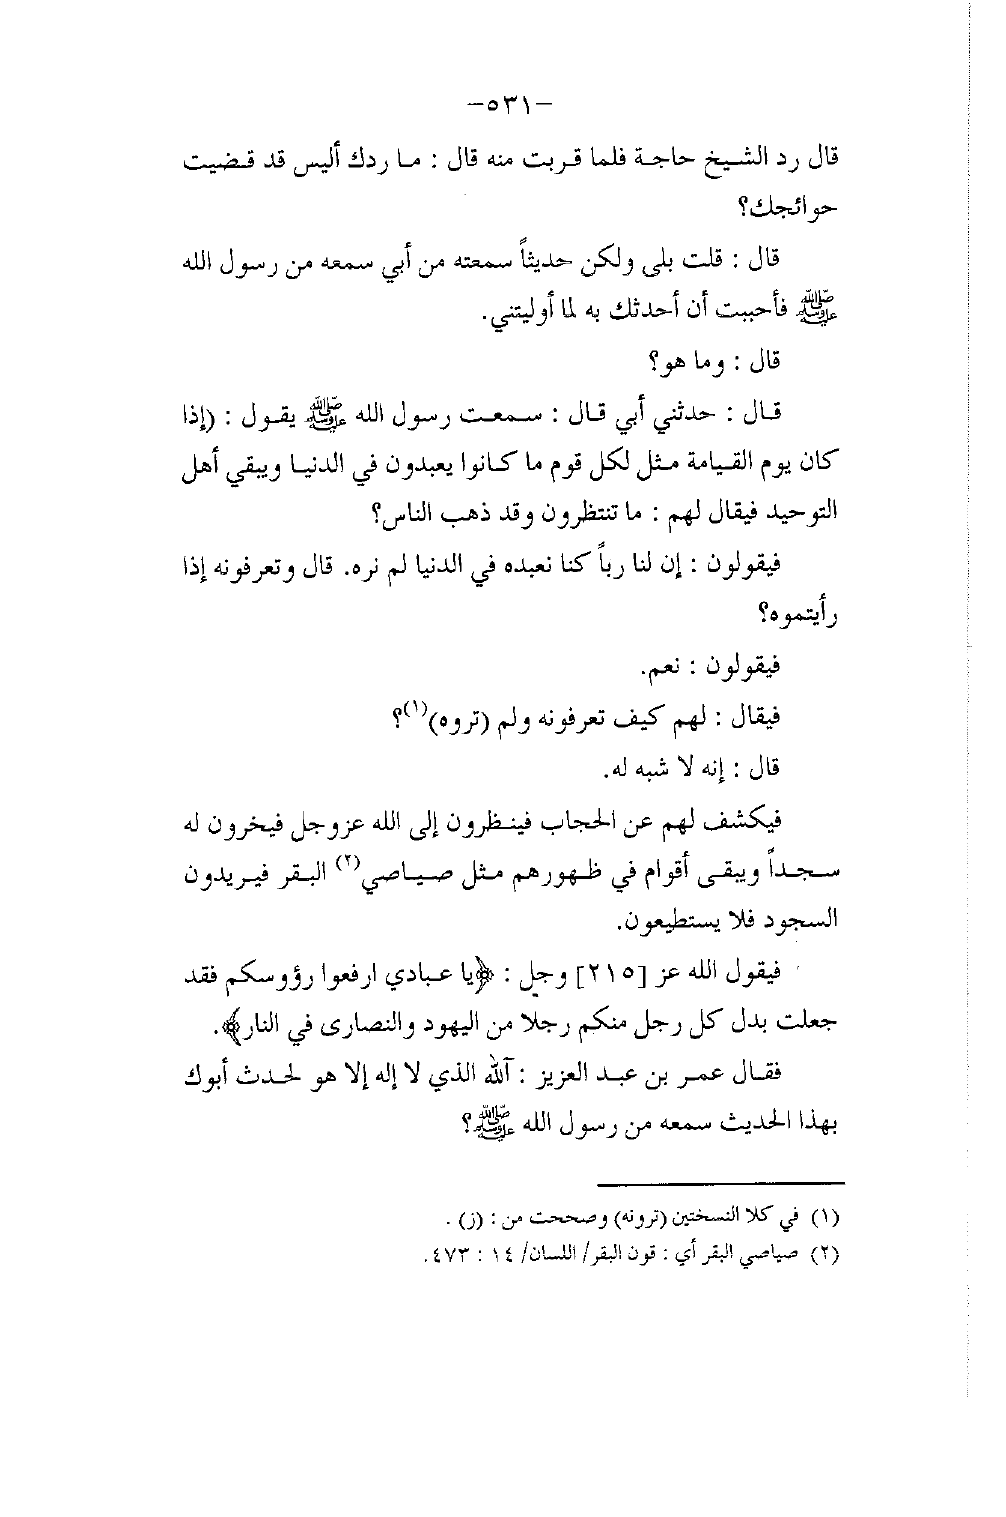 -٥٣١-
قال رد الشيخ حاجة فلما قربت منه قال : ما ردك أليس قد قضيت
حوائجك؟
قال : قلت بلى ولكن حديثاً سمعته من أبي سمعه من رسول الله
ﷺ فأحببت أن أحدثك به لما أوليتني.
قال : وما هو؟
قال : حدثني أبي قال : سمعت رسول الله ﷺ يقول : (إذا
كان يوم القيامة مثل لكل قوم ما كانوا يعبدون في الدنيا ويبقي أهل
التوحيد فيقال لهم : ما تنتظرون وقد ذهب الناس؟
فيقولون : إن لنا رباً كنا نعبده في الدنيا لم نره. قال وتعرفونه إذا
رأيتموه؟
فيقولون : نعم.
فيقال : لهم كيف تعرفونه ولم (تروه)(١)؟
قال : إنه لا شبه له.
فيكشف لهم عن الحجاب فينظرون إلى الله عزوجل فيخرون له
سجداً ويبقى أقوام في ظهورهم مثل صياصي(٢) البقر فيريدون
السجود فلا يستطيعون.
فيقول الله عز [٢١٥] وجل : ﴿يا عبادي ارفعوا رؤوسكم فقد
جعلت بدل كل رجل منكم رجلا من اليهود والنصارى في النار﴾.
فقال عمر بن عبد العزيز : آلله الذي لا إله إلا هو لحدث أبوك
بهذا الحديث سمعه من رسول الله ﷺ؟
(١) في كلا النسختين (ترونه) وصححت من : (ز) .
(٢) صياصي البقر أي : قون البقر/ اللسان/ ١٤ : ٤٧٣.